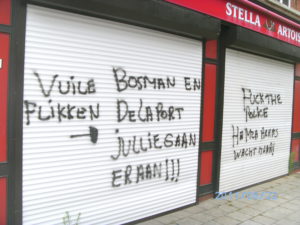 STELLA ARTOIS
VUILE
FLIKKEN
BOSMAN EN
DELAPORT
JULLIE GAAN
ERAAN!!!
FUCK THE
POLICE
WACHT